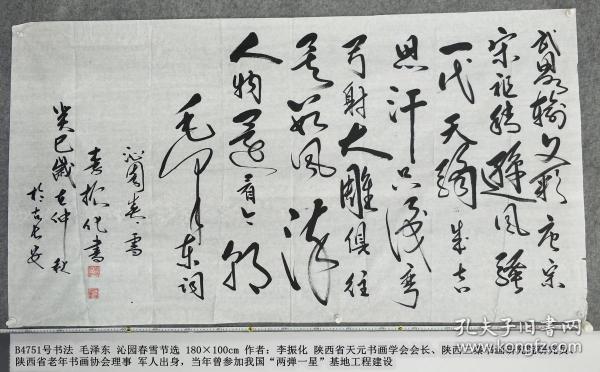 武略输文彩唐宗
宋祖稍逊风骚
一代天骄成吉
思汗只识弯
弓射大雕俱往
矣数风流
人物还看今朝
毛泽东词
沁园春雪
李振化书
癸巳岁在仲秋
於古长安
B4751号书法 毛泽东 沁园春雪节选 180×100cm 作者：李振化 陕西省天元书画学会会长、陕西
陕西省老年书画协会理事 军人出身，当年曾参加我国“两弹一星”基地工程建设